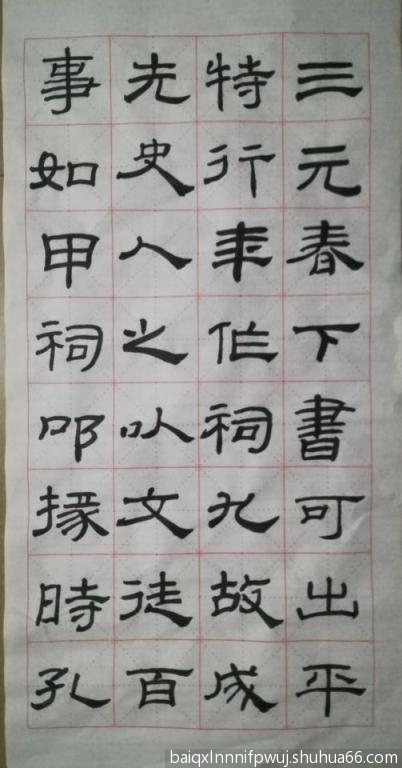 三元春下書可出平
特行年作祠九故成
先史人之以文徒百
事如甲祠叩掾時孔
baiqxlnnnifpwuj.shuhua66.com